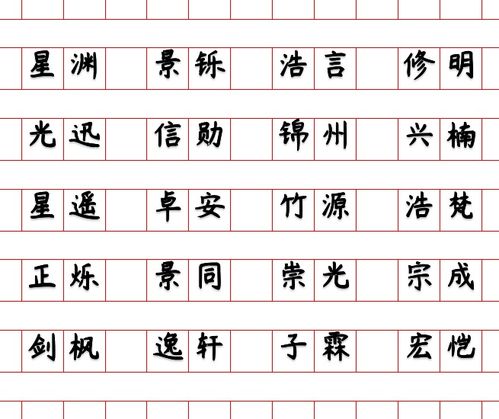 星渊 景铄 浩言 修明
光迅 信勋 锦州 兴楠
星遥 卓安 竹源 浩梵
正烁 景同 崇光 宗成
剑枫 逸轩 子霖 宏恺